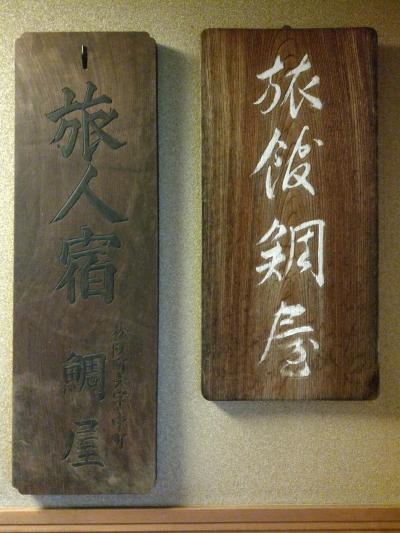 旅館鯛屋
旅人宿
鯛屋